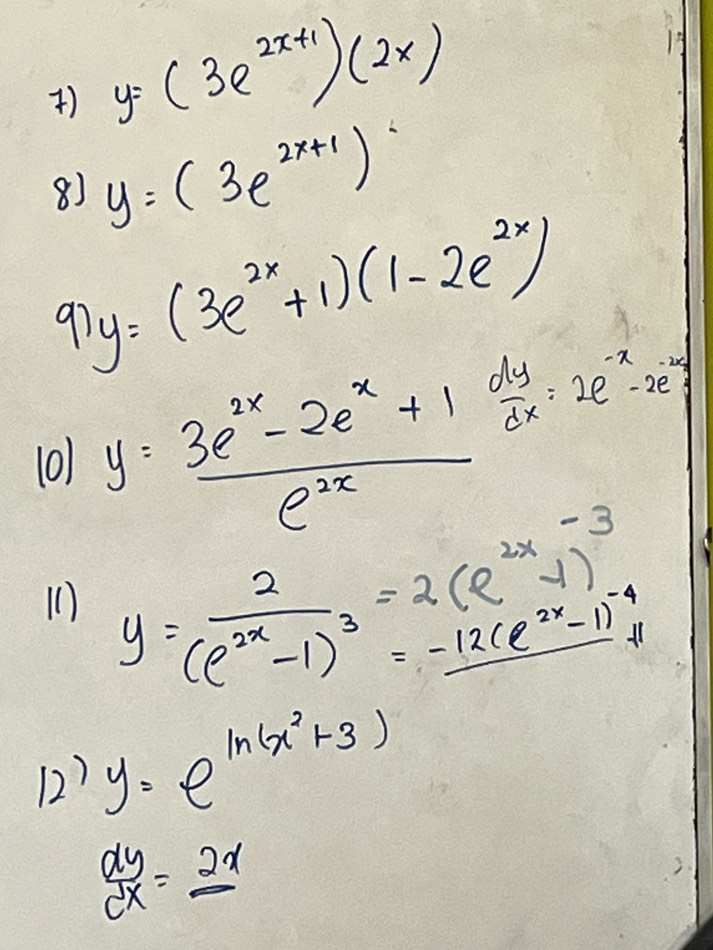 7) y= (3e^{2x+1})(2x)
8) y = (3e^{2x+1})
9) y= (3e^{2x} + 1)(1 - 2e^{2x})
10) y = \frac{3e^{2x} - 2e^{x} + 1}{e^{2x}} \frac{dy}{dx} = 2e^{-x} - 2e^{-2x}
11) y = \frac{2}{(e^{2x} - 1)^3} = 2(e^{2x} - 1)^{-3}
= -12(e^{2x} - 1)^{-4}
12) y = e^{ln(x^2 + 3)}
\frac{dy}{dx} = 2x